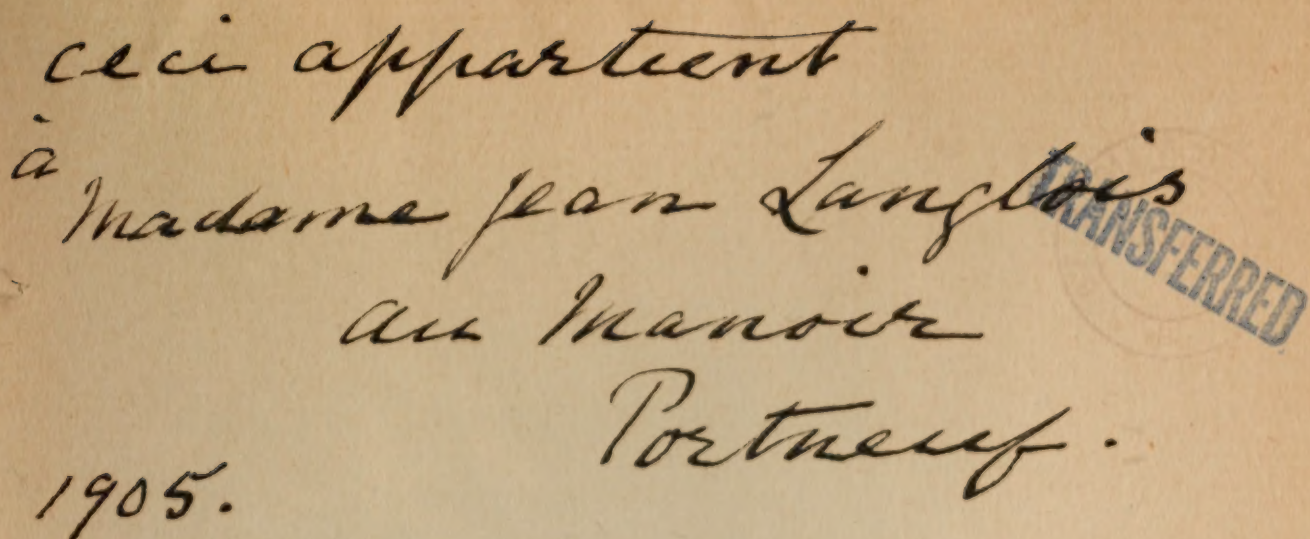 ceci appartient
à
Madame Jean Langlois
TRANSFERRED
au Manoir
Portneuf.
1905.